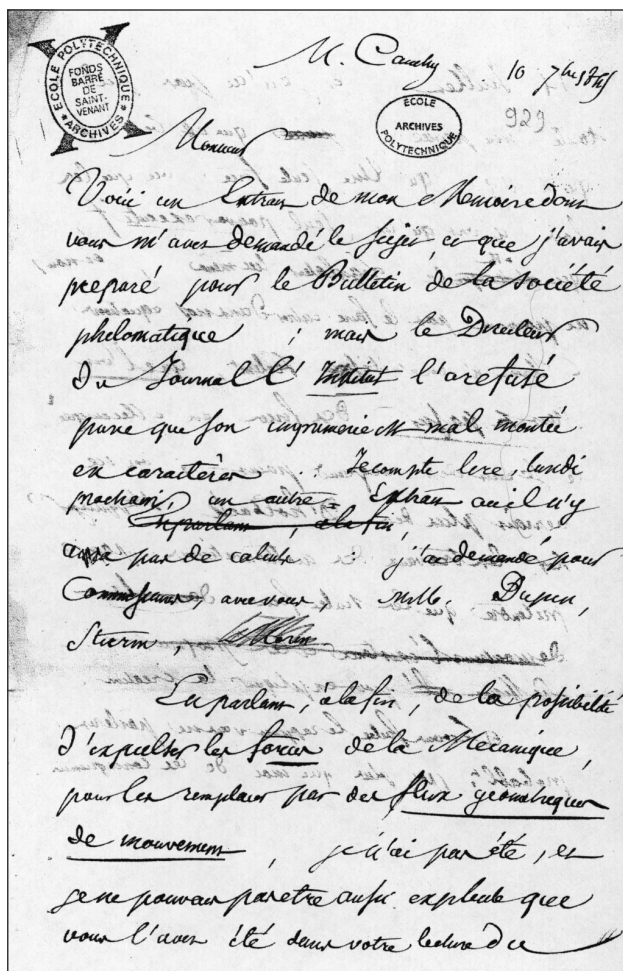 ECOLE POLYTECHNIQUE
FONDS
BARRÉ
DE
SAINT-
VENANT
ARCHIVES
M. Cauchy 10 7bre 1845
ÉCOLE
ARCHIVES
POLYTECHNIQUE
929
Monsieur
Voici un Extrait de mon Memoire dont
vous m'avez demandé le sujet, et que j'avais
preparé pour le Bulletin de la société
philomatique ; mais le Directeur
du Journal l'Institut l'a refusé
parce que son imprimerie est mal montée
en caractères . Je compte lire, lundi
prochain, un autre Extrait où il n'y
En parlant, à la fin,
aura pas de calculs : j'ai demandé pour
Commissaires, avec vous MM. Dupin,
Sturm,
En parlant, à la fin, de la possibilité
d'expulser les forces de la Mécanique,
pour les remplacer par des flux géometriques
de mouvement, je n'ai pas été, et
je ne pouvais pas etre aussi explicite que
vous l'avez été dans votre lecture du